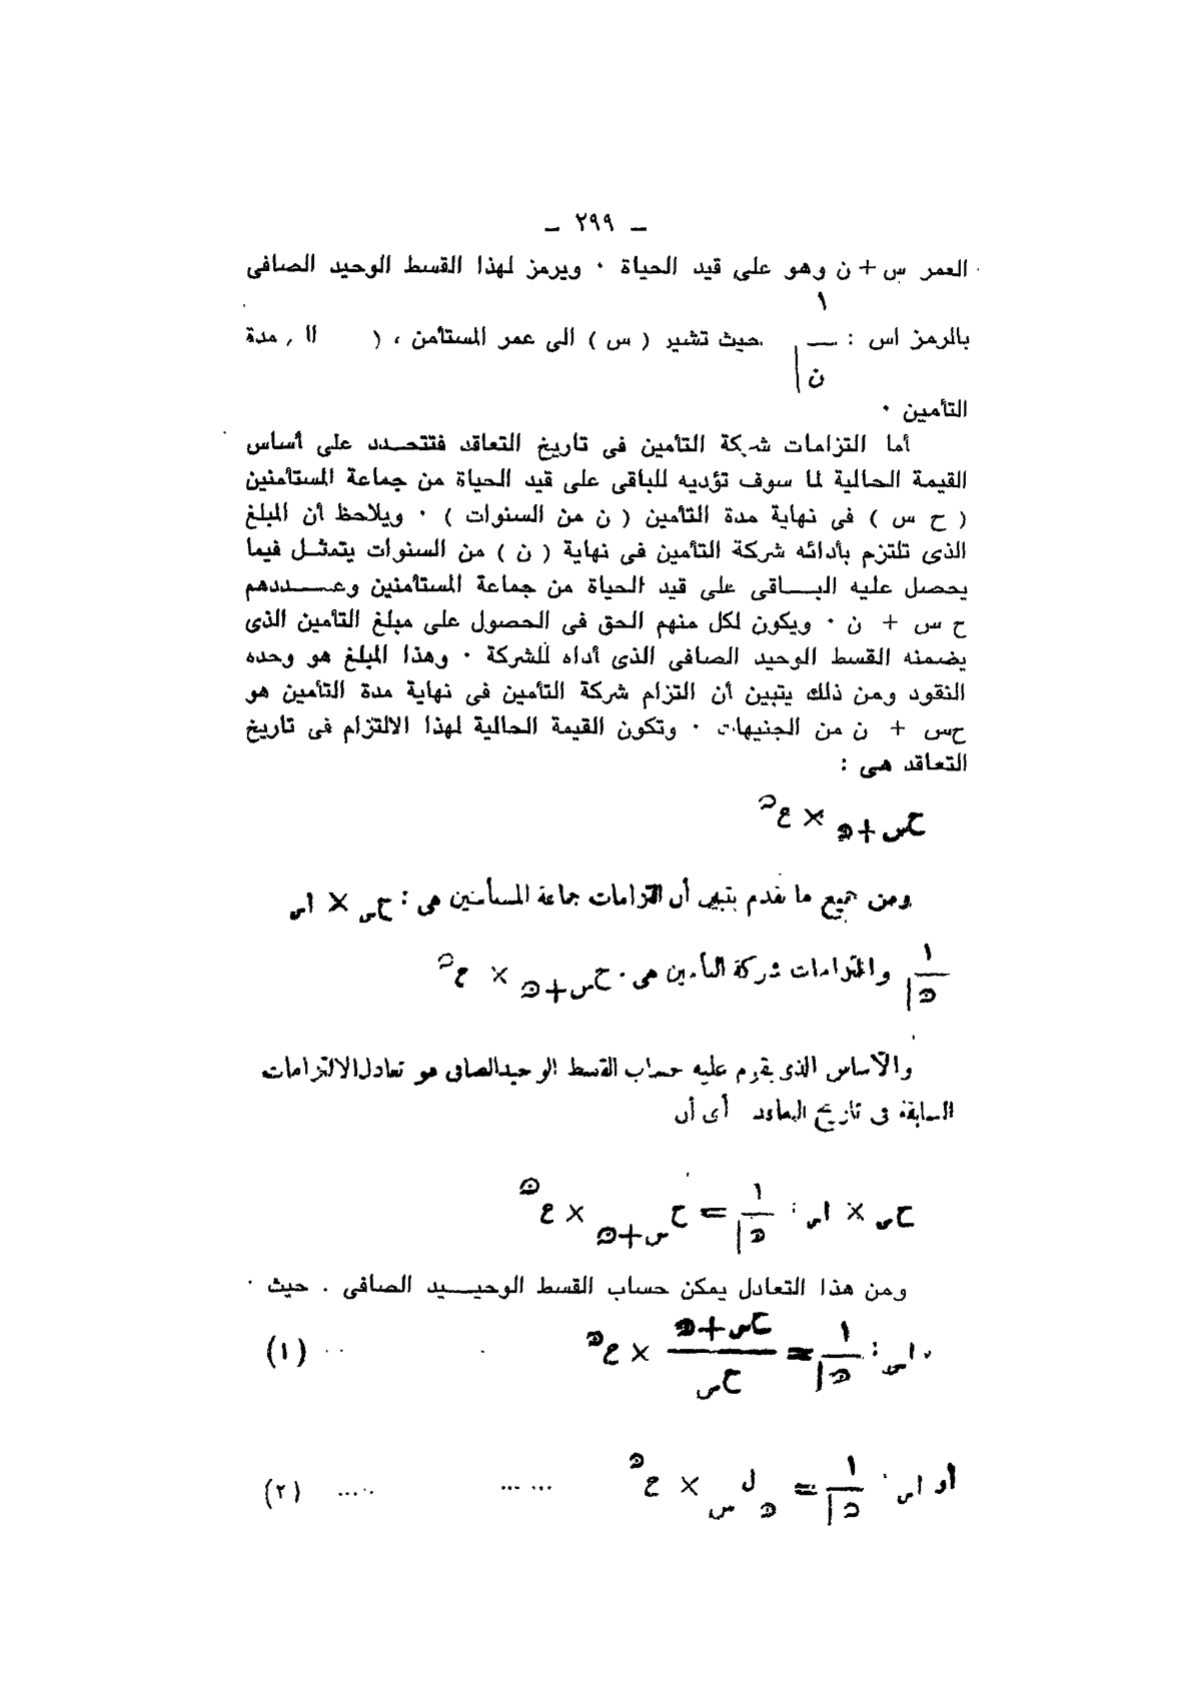 ـ ٢٩٩ ـ
العمر س + ن وهو على قيد الحياة ٠ ويرمز لهذا القسط الوحيد الصافى
١
بالرمز اس : — حيث تشير ( س ) الى عمر المستأمن ، ( اا , مدة
ن|
التأمين ٠
أما التزامات شركة التأمين فى تاريخ التعاقد فتتحــدد على أساس
القيمة الحالية لما سوف تؤديه للباقى على قيد الحياة من جماعة المستأمنين
( ح س ) فى نهاية مدة التأمين ( ن من السنوات ) ٠ ويلاحظ أن المبلغ
الذى تلتزم بأدائه شركة التأمين فى نهاية ( ن ) من السنوات يتمثـل فيما
يحصل عليه البـــاقى على قيد الحياة من جماعة المستأمنين وعــــددهم
ح س + ن ٠ ويكون لكل منهم الحق فى الحصول على مبلغ التأمين الذى
يضمنه القسط الوحيد الصافى الذى أداه للشركة ٠ وهذا المبلغ هو وحده
النقود ومن ذلك يتبين أن التزام شركة التأمين فى نهاية مدة التأمين هو
حس + ن من الجنيهات ٠ وتكون القيمة الحالية لهذا الالتزام فى تاريخ
التعاقد هى :
ح س+ن × ع ن
ومن جميع ما تقدم يتبين أن التزامات جماعة المستأمنين هى : ح س × اس
١
ن| والتزامات شركة التأمين هى ٠ ح س+ن × ع ن
والأساس الذى يقوم عليه حساب القسط الوحيد الصافى هو تعادل الالتزامات
السابقة فى تاريخ التعاقد أى أن
ح س × اس : ١/ن| = ح س+ن × ع ن
ومن هذا التعادل يمكن حساب القسط الوحيـــيد الصافى . حيث ٠
اس : ١/ن| = ح س+ن / ح س × ع ن (١)
أو اس : ١/ن| = ن ل س × ع ن ... ... ..... (٢)